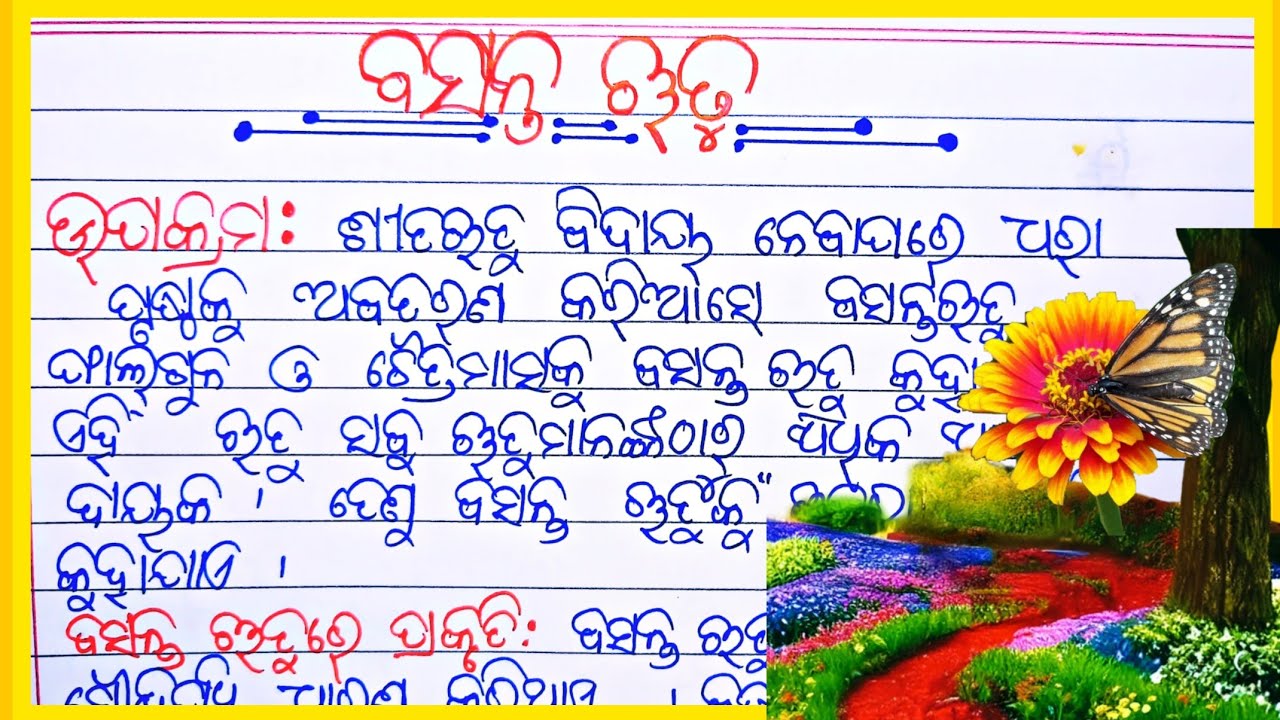 ବସନ୍ତ ଋତୁ
ଉପକ୍ରମ: ଶୀତଋତୁ ବିଦାୟ ନେବାପରେ ଧରା
ପୃଷ୍ଠକୁ ଅବତରଣ କରିଆସେ ବସନ୍ତଋତୁ
ଫାଲଗୁନ ଓ ଚୈତ୍ରମାସକୁ ବସନ୍ତ ଋତୁ
ଏହି ଋତୁ ସବୁ ଋତୁମାନଙ୍କଠାରୁ ଅଧିକ
ଦାୟକ । ତେଣୁ ବସନ୍ତ ଋତୁକୁ "
କୁହାଯାଏ ।
ବସନ୍ତ ଋତୁରେ ପ୍ରକୃତି: ବସନ୍ତ ଋତୁ